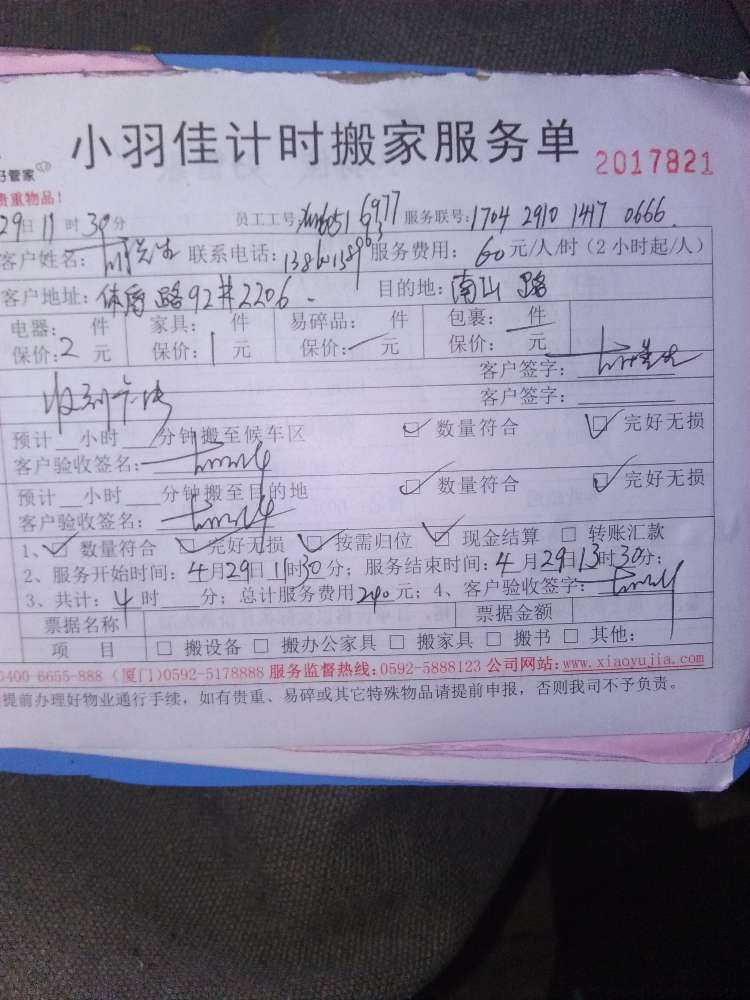 小羽佳计时搬家服务单 2017821
好管家
贵重物品！
29日11时30分 员工工号： 6977 服务联号：1704 2910 1417 0666
客户姓名： 先生 联系电话： 服务费用：60元/人/时（2小时起/人）
客户地址：体育路92#2206. 目的地：南山路
电器： 件 家具： 件 易碎品： 件 包裹：一件
保价：2元 保价：1元 保价：一元 保价： 元
客户签字：
客户签字：
收到
预计__小时___分钟搬至候车区 ☑ 数量符合 ☑ 完好无损
客户验收签名：
预计__小时___分钟搬至目的地 ☑ 数量符合 ☑ 完好无损
客户验收签名：
1、☑ 数量符合 ☑ 完好无损 ☑ 按需归位 ☑ 现金结算 □ 转账汇款
2、服务开始时间：4月29日11时30分；服务结束时间：4月29日13时30分；
3、共计：4时___分；总计服务费用240元；4、客户验收签字：
票据名称 票据金额
项 目 □ 搬设备 □ 搬办公家具 □ 搬家具 □ 搬书 □ 其他：
0400-6655-888 (厦门)0592-5178888 服务监督热线：0592-5888123 公司网站：www.xiaoyujia.com
提前办理好物业通行手续，如有贵重、易碎或其它特殊物品请提前申报，否则我司不予负责。